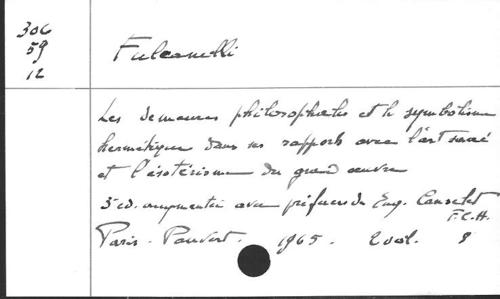 306
59
12
Fulcanelli
Les demeures philosophales et le symbolisme
hermétique dans ses rapports avec l'art sacré
et l'ésotérisme du grand œuvre
3e ed. augmentée avec préfaces de Eug. Canseliet
F.C.H.
Paris. Pauvert. 1965. 2 vol. 8°